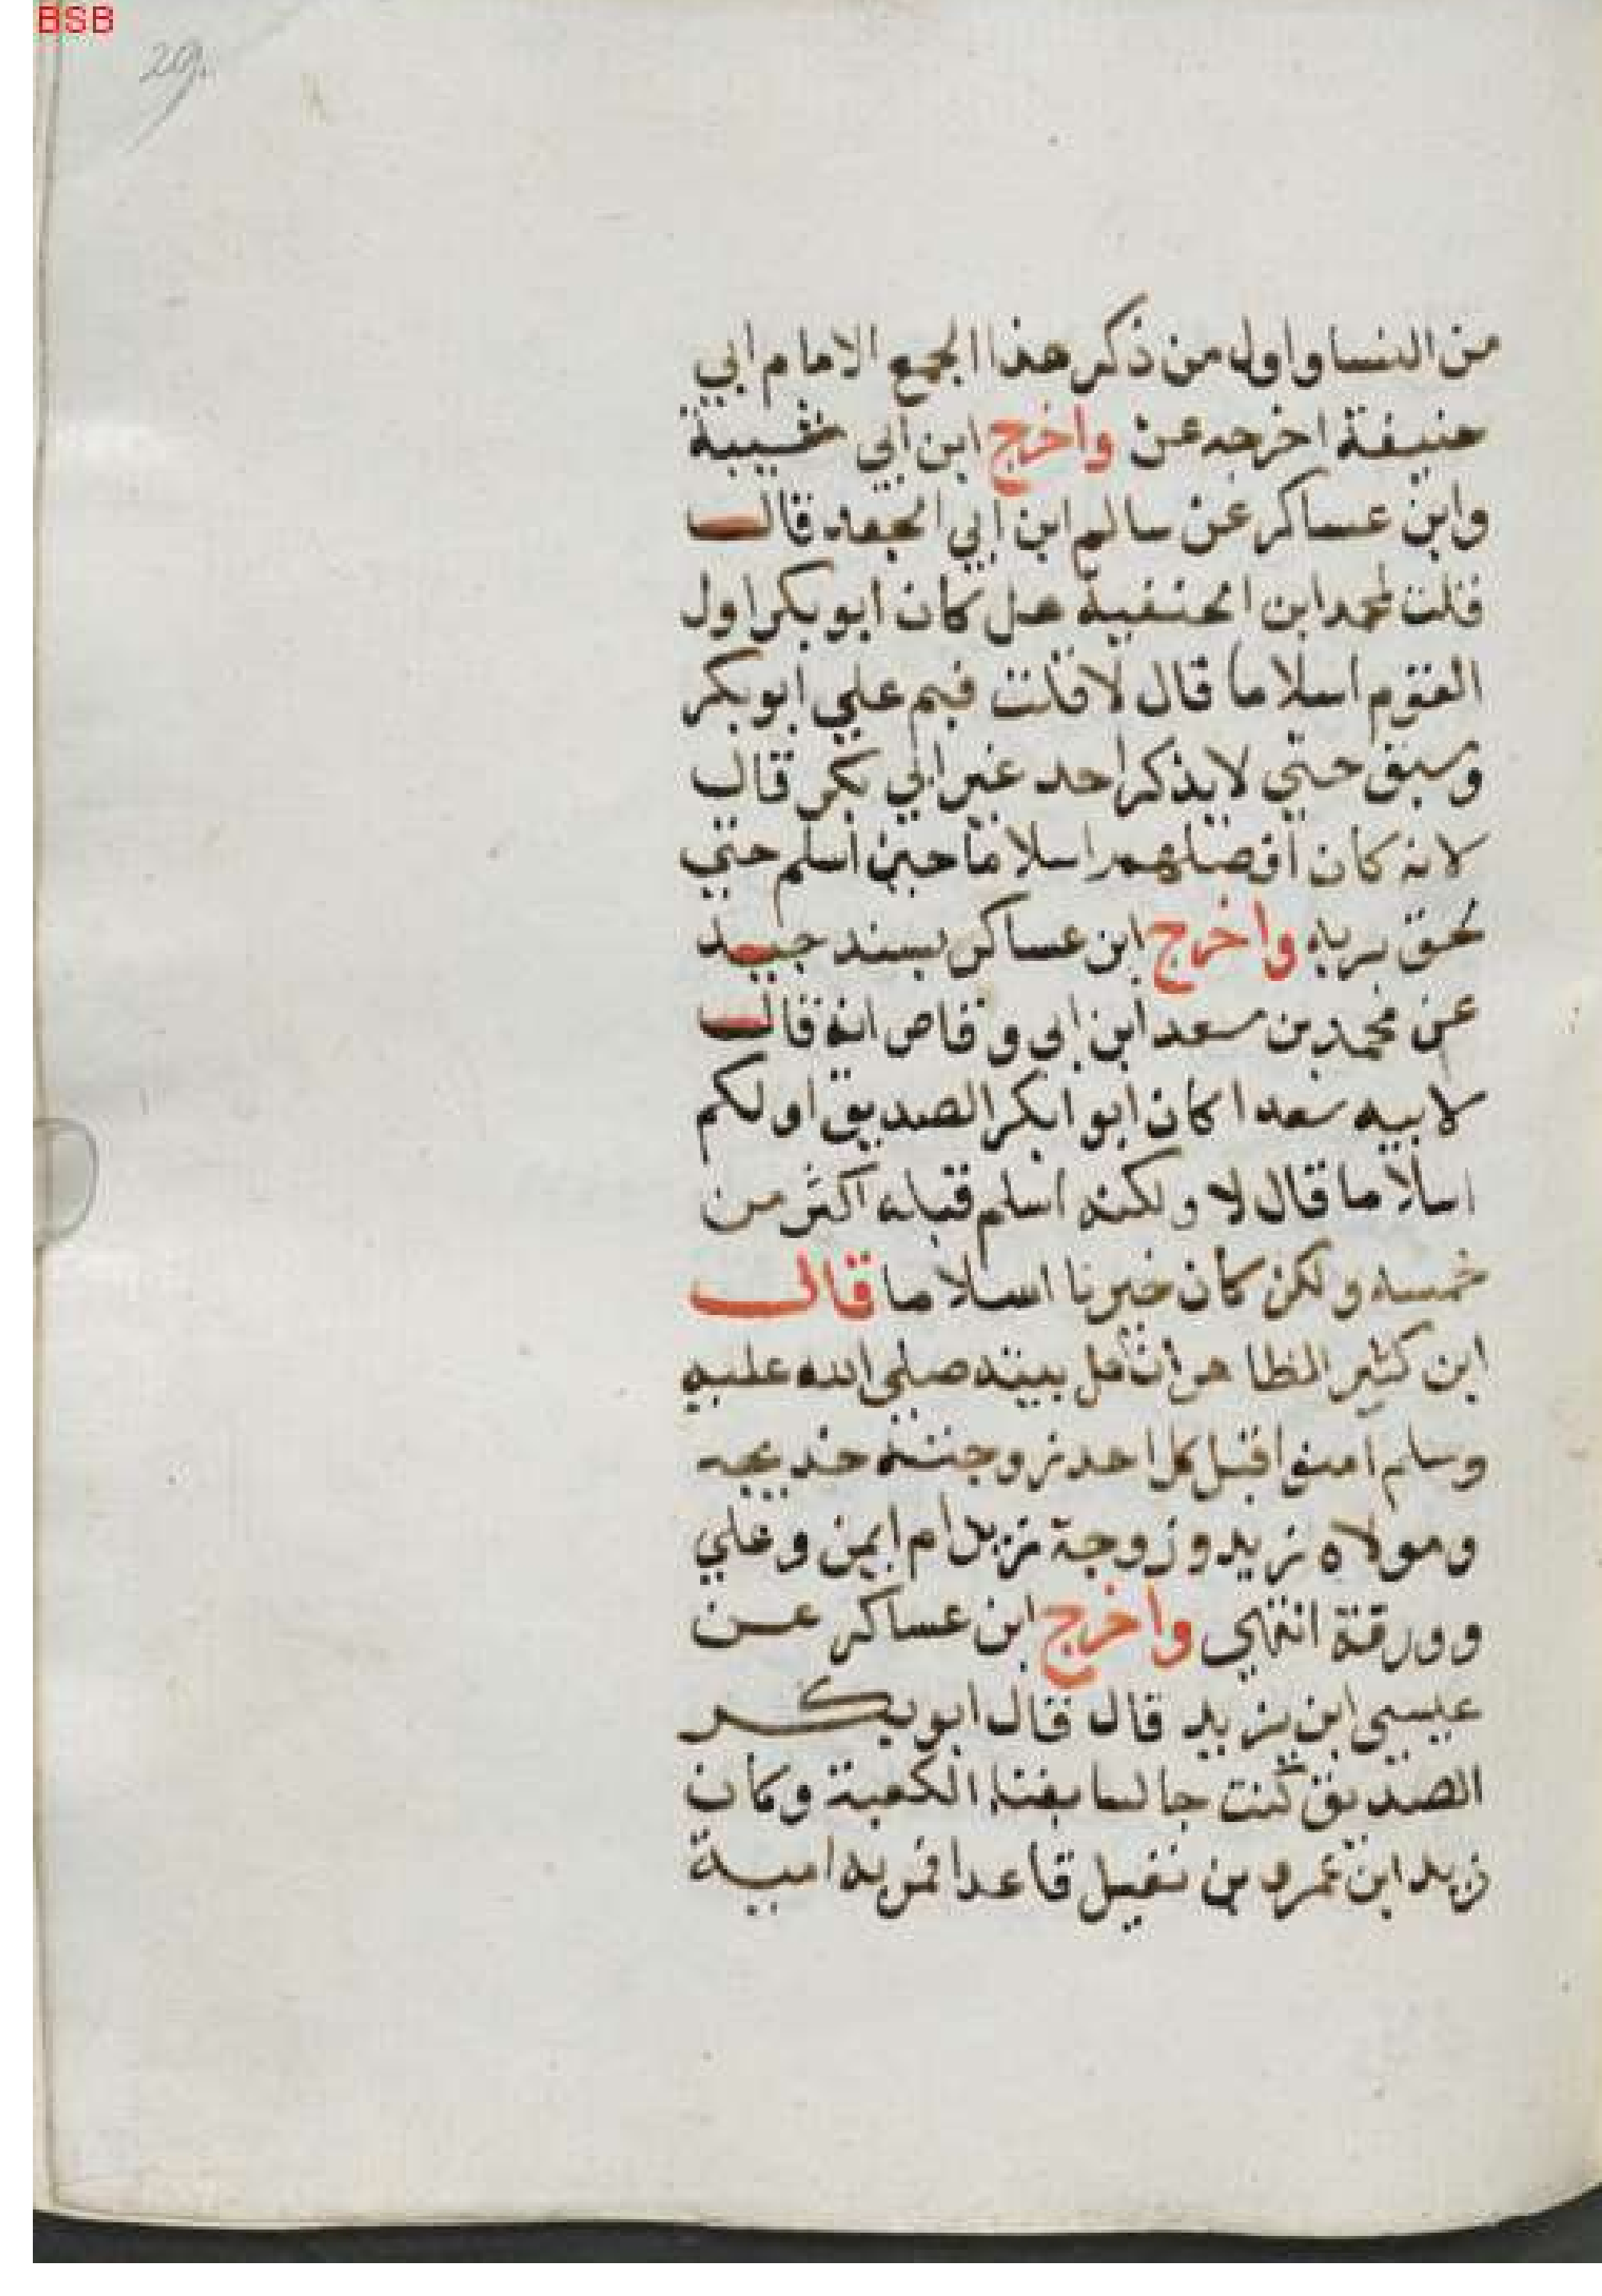 BSB
29.
من النسا واول من ذكر هذا الجمع الامام ابي
حنيفة اخرجه عن واخرج ابن ابي شيبة
وابن عساكر عن سالم ابن ابي الجعد قال
قلت لمحمد ابن الحنفية هل كان ابو بكر اول
القوم اسلاما قال لا قلت فبم علي ابو بكر
وسبق حتي لا يذكر احد غير ابي بكر قال
لانه كان افضلهم اسلاما حين اسلم حتي
لحق بربه واخرج ابن عساكر بسند جيد
عن محمد بن سعد ابن ابي وقاص انه قال
لابيه سعد اكان ابو ابكر الصديق اولكم
اسلاما قال لا ولكنه اسلم قبله اكثر من
خمسه ولكن كان خيرنا اسلاما قال
ابن كثير الظاهر ان اهل بيته صلي الله عليه
وسلم امنوا قبل كل احد زوجته خديجه
ومولاه زيد وزوجة زيد ام ايمن وعلي
وورقة انتهي واخرج ابن عساكر عن
عيسي ابن يزيد قال قال ابو بكر
الصديق كنت جالسا بفنا الكعبة وكان
زيد ابن عمرو بن نفيل قاعدا فمر به امية